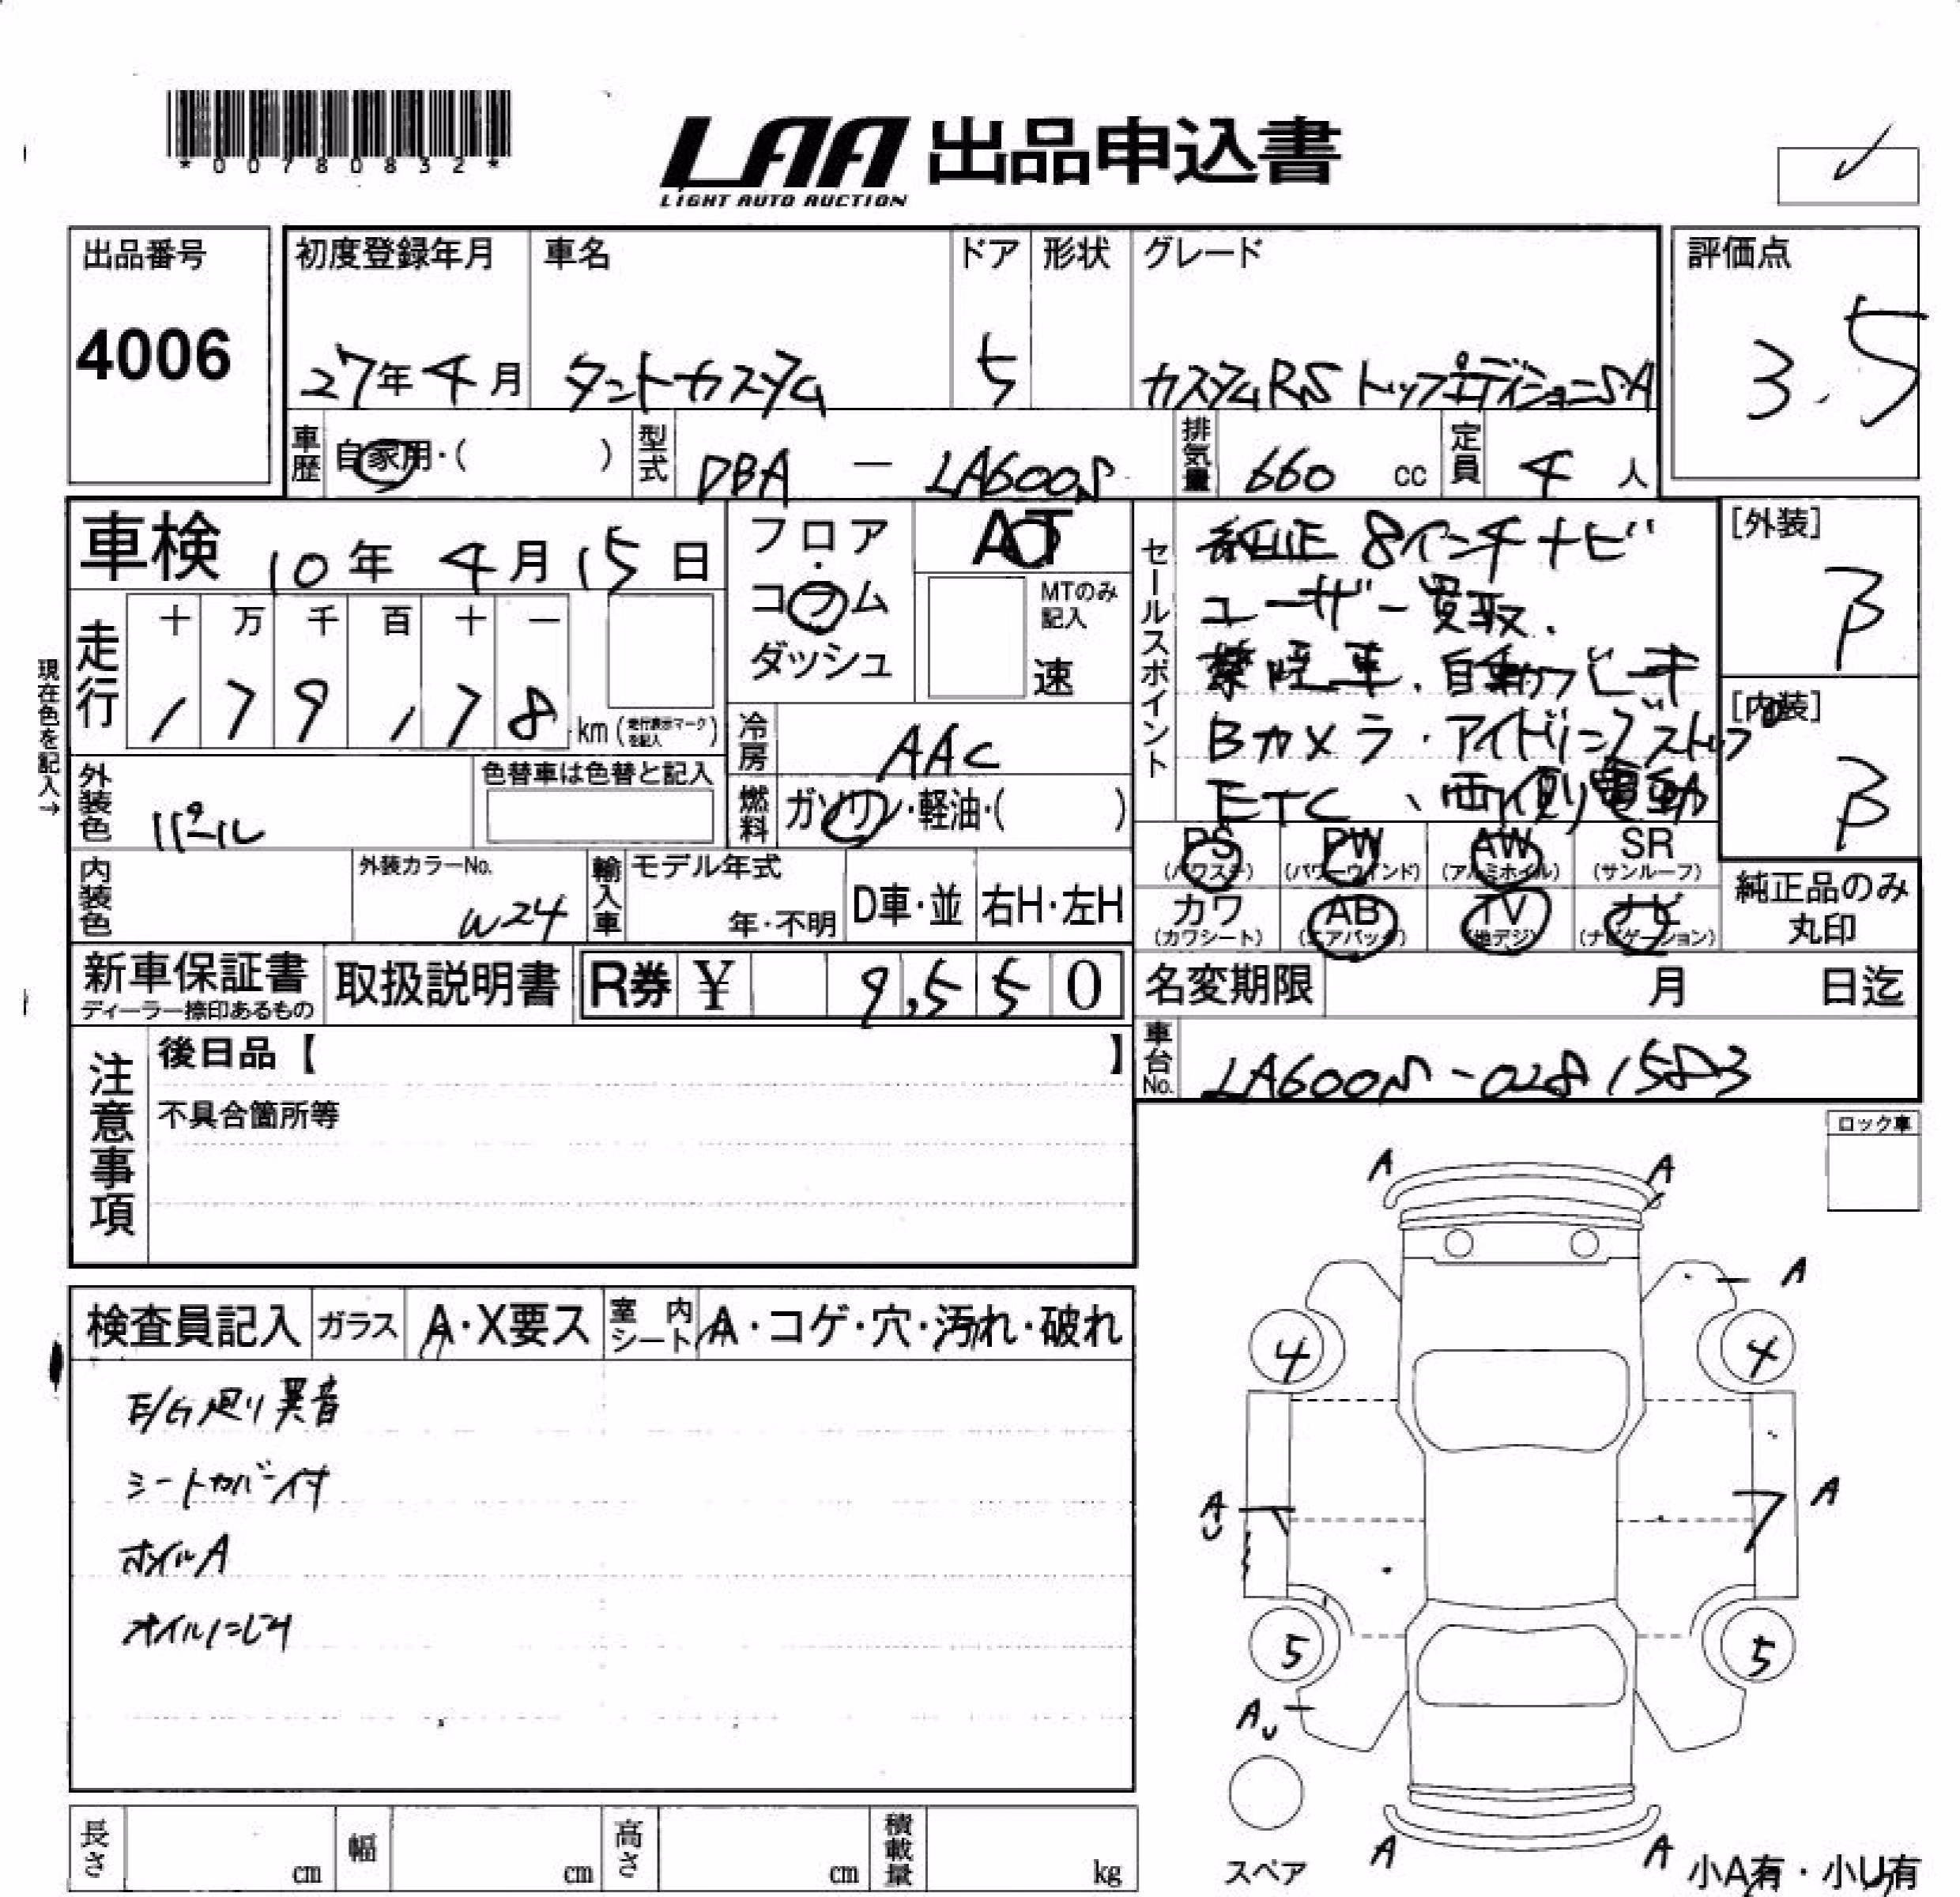 *00780832*
LAA 出品申込書
LIGHT AUTO AUCTION
出品番号
4006
初度登録年月
27年4月
車名
タントカスタム
ドア
5
形状
グレード
カスタムRS トップエディションSA
評価点
3.5
車歴
自家用・( )
型式
DBA - LA600S
排気量
660 cc
定員
4 人
車検 10年 4月 15日
走行
十 万 千 百 十 一
179,178 km (走行表示マークを記入)
現在色を記入→
外装色
パール
色替車は色替と記入
内装色
外装カラーNo.
W24
フロア・コラム
ダッシュ
AT
MTのみ記入
速
冷房
AAC
燃料
ガソリン・軽油・( )
輸入車
モデル年式
年・不明
D車・並
右H・左H
セールスポイント
純正 8インチナビ
ユーザー買取.
禁煙車.自動ブレーキ
Bカメラ・アイドリングストップ
ETC、両側電動
[外装]
B
[内装]
B
PS
(パワステ)
PW
(パワーウインド)
AW
(アルミホイル)
SR
(サンルーフ)
カワ
(カワシート)
AB
(エアバッグ)
TV
(地デジ)
ナビ
(ナビゲーション)
純正品のみ
丸印
新車保証書
ディーラー捺印あるもの
取扱説明書
R券 ¥ 9,550
名変期限 月 日迄
車台No.
LA600S-0281583
注意事項
後日品【 】
不具合箇所等
ロック車
検査員記入
ガラス
A・X要ス
室内シート
A・コゲ・穴・汚れ・破れ
E/G廻り異音
シートカバー付
ホイルA
オイルにじみ
A A
A
4 4
A U
7 A
5 5
AU
スペア
A A
小A有・小U有
長さ cm
幅 cm
高さ cm
積載量 kg